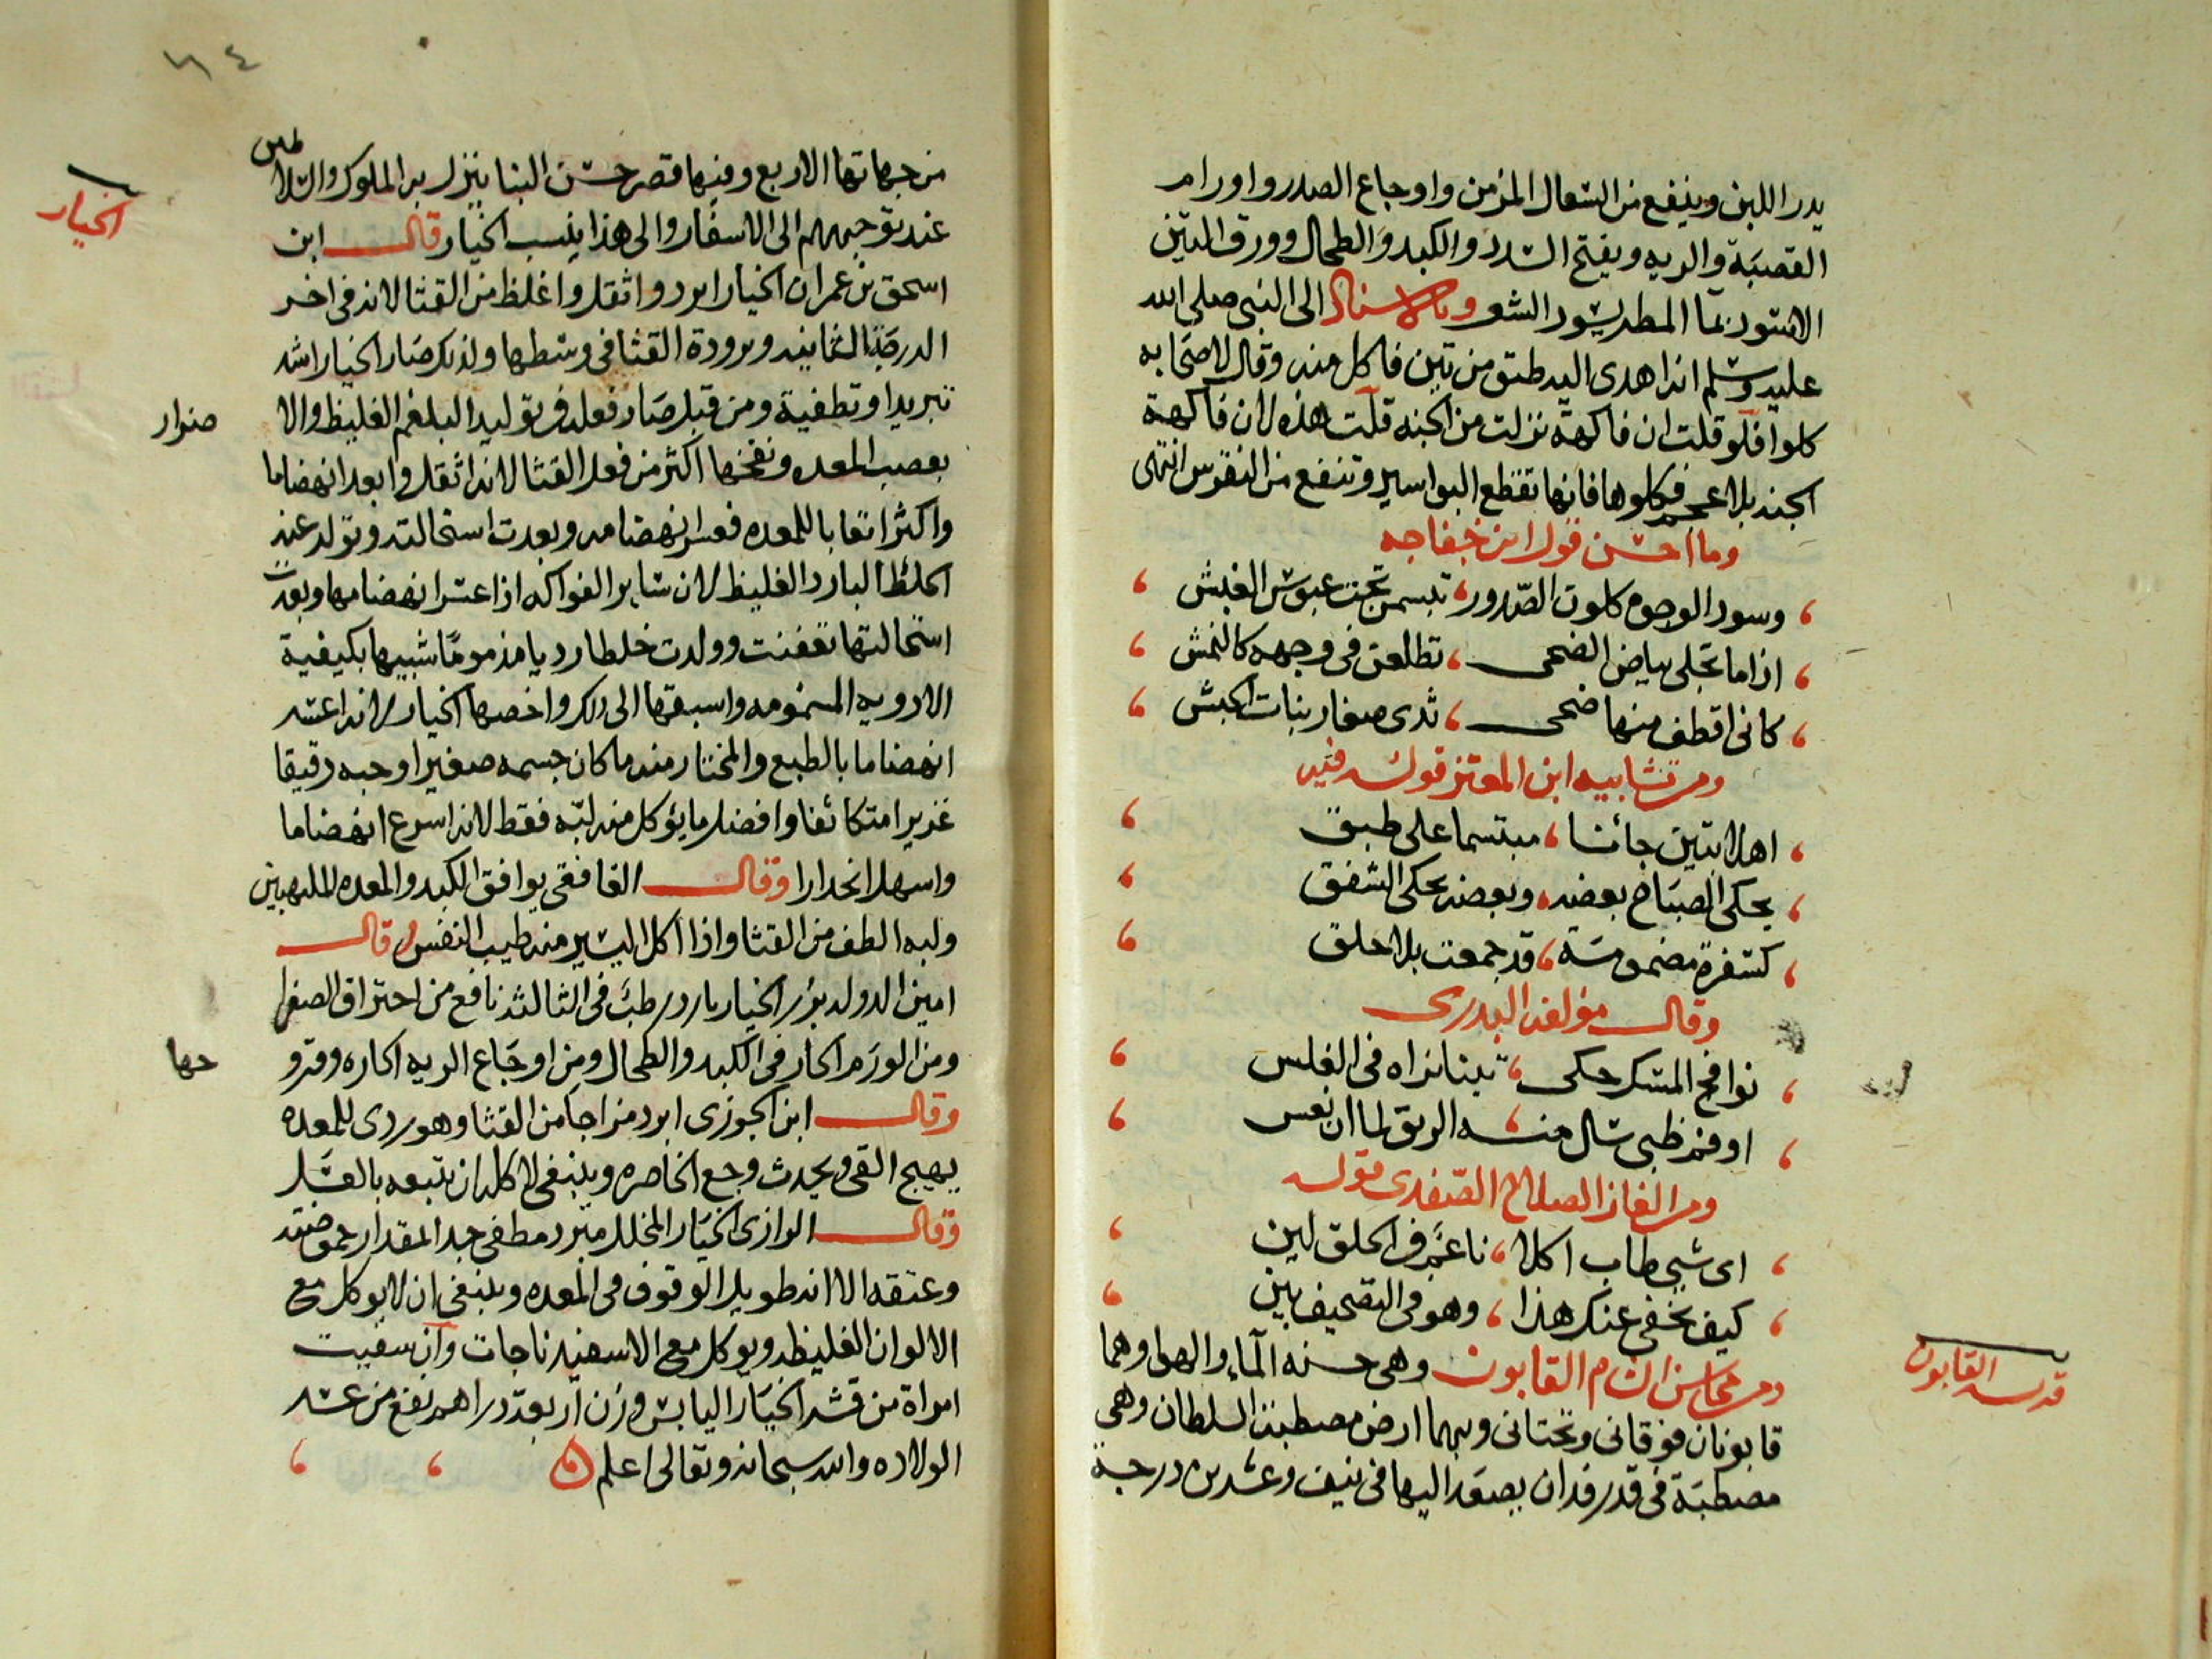 يدر اللبن وينفع من السعال المزمن واوجاع الصدر واورام
القصبة والريه ويفتح السدد والكبد والطحال وورق التين
الاسود بما المطر يسود الشعر وبالاسناد الى النبى صلى الله
عليه وسلم انه اهدى اليه طبق من تين فاكل منه وقال لاصحابه
كلوا فلو قلت ان فاكهة نزلت من الجنه قلت هذه لان فاكهة
الجنه بلا عجم فكلوها فانها تقطع البواسير وتنفع من النقرس انتهى
وما احسن قول ابن خفاجه
وسود الوجوه كلون الصدور، تبسمن تحت عبوس الغبش
اذا ما تجلى بياض الضحى، تطلعن فى وجهه كالنمش
كانى اقطف منها ضحى، ثدى صغار بنات الحبش
ومن تشابيه ابن المعتز قوله فيه
اهلا بتين جائنا، مبتسما على طبق
يحكى الصباح بعضه، وبعضه يحكى الشفق
كسفرة مضمومة، قد جمعت بلا حلق
وقال مؤلفه البدرى
نوافح المسك حكى، تينا نراه فى الغلس
او فم ظبى سال منه، الريق لما ان نعس
ومن الغاز الصلاح الصفدى قوله
اى شيى طاب اكلا، ناعم فى الحلق لين
كيف يخفى عنك هذا، وهو فى التصحيف بين
ومن محاسن الشام القابون وهى حسنه الماء والهوا وهما
قابونان فوقانى وتحتانى وبهما ارض مصطبة السلطان وهى
مصطبة فى قدر فدان يصعد اليها فى نيف وعشرين درجة
القابون
٦٤
من جهاتها الاربع وفيها قصر حسن البنا ينزل به الملوك والسلاطين
عند توجههم الى الاسفار والى هذا ينسب الخيار قال ابن
اسحق بن عمران الخيار ابرد واثقل واغلظ من القثا لانه فى اخر
الدرجة الثانيه وبرودة القثا فى وسطها ولذلك صار الخيار اشد
تبريدا وتطفية ومن قبل صار فعله فى توليد البلغم الغليظ والا
بعصب المعده ونفخها اكثر من فعل القثا لانه اثقل وابعد انهضاما
واكثر اتعابا للمعده فعسر انهضامه وبعدت استحالته وتولد عنه
الخلط البارد الغليظ لان ساير الفواكه اذا عسر انهضامها وبعدت
استحالتها تعفنت وولدت خلطا رديا مذموما شبيها بكيفية
الادويه المسمومه واسبقها الى ذلك واخصها الخيار لانه اعسر
انهضاما بالطبع والمختار منه ما كان جسمه صغيرا وحبه رقيقا
غزيرا متكاثفا وافضل ما يؤكل منه لبه فقط لانه اسرع انهضاما
واسهل انحدارا وقال الغافقى يوافق الكبد والمعده الملتهبين
ولبه الطف من القثا واذا اكل اليسير منه طيب النفس وقال
امين الدوله بزر الخيار بارد رطب فى الثالثه نافع من احتراق الصفرا
ومن الورم الحار فى الكبد والطحال ومن اوجاع الريه الحاره وقرو
وقال ابن الجوزى ابرد مزاجا من القثا وهو ردى للمعده
يهيج القى ويحدث وجع الخاصره وينبغى لاكله ان يتبعه بالعسل
وقال الرازى الخيار المخلل مبرد مطفى جدا لمقدار حموضته
وعتقه الا انه طويل الوقوف فى المعده وينبغى ان لا يوكل مع
الالوان الغليظه ويوكل مع الاسفيدناجات وان سقيت
امراة من قشر الخيار اليابس وزن اربعة دراهم نفع من عسر
الولاده والله سبحانه وتعالى اعلم
الخيار
حها